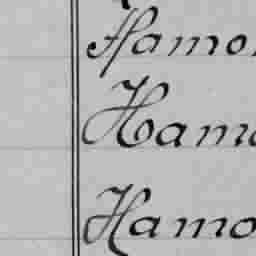 Hamo
Hamo
Hamo